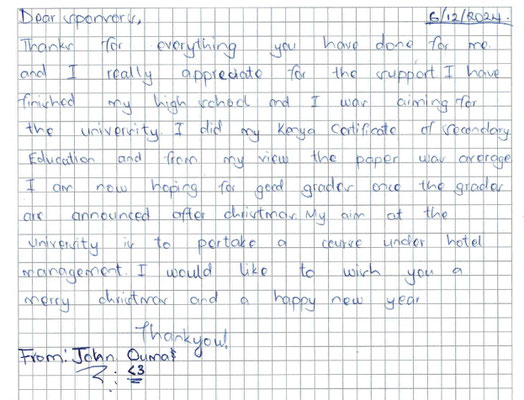 Dear sponsors,
6/12/2024
Thanks for everything you have done for me
and I really appreciate for the support I have
finished my high school and I was aiming for
the university. I did my Kenya Certificate of Secondary
Education and from my view the paper was average
I am now hoping for good grades once the grades
are announced after christmas. My aim at the
university is to partake a course under hotel
management. I would like to wish you a
merry christmas and a happy new year
Thankyou!
From: John Ouma
<3